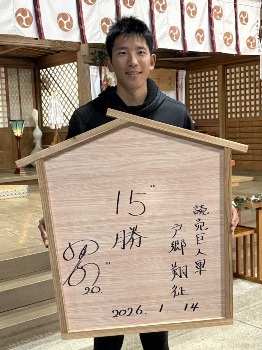 読売巨人軍
戸郷翔征
15"
勝
20"
2026.1.14